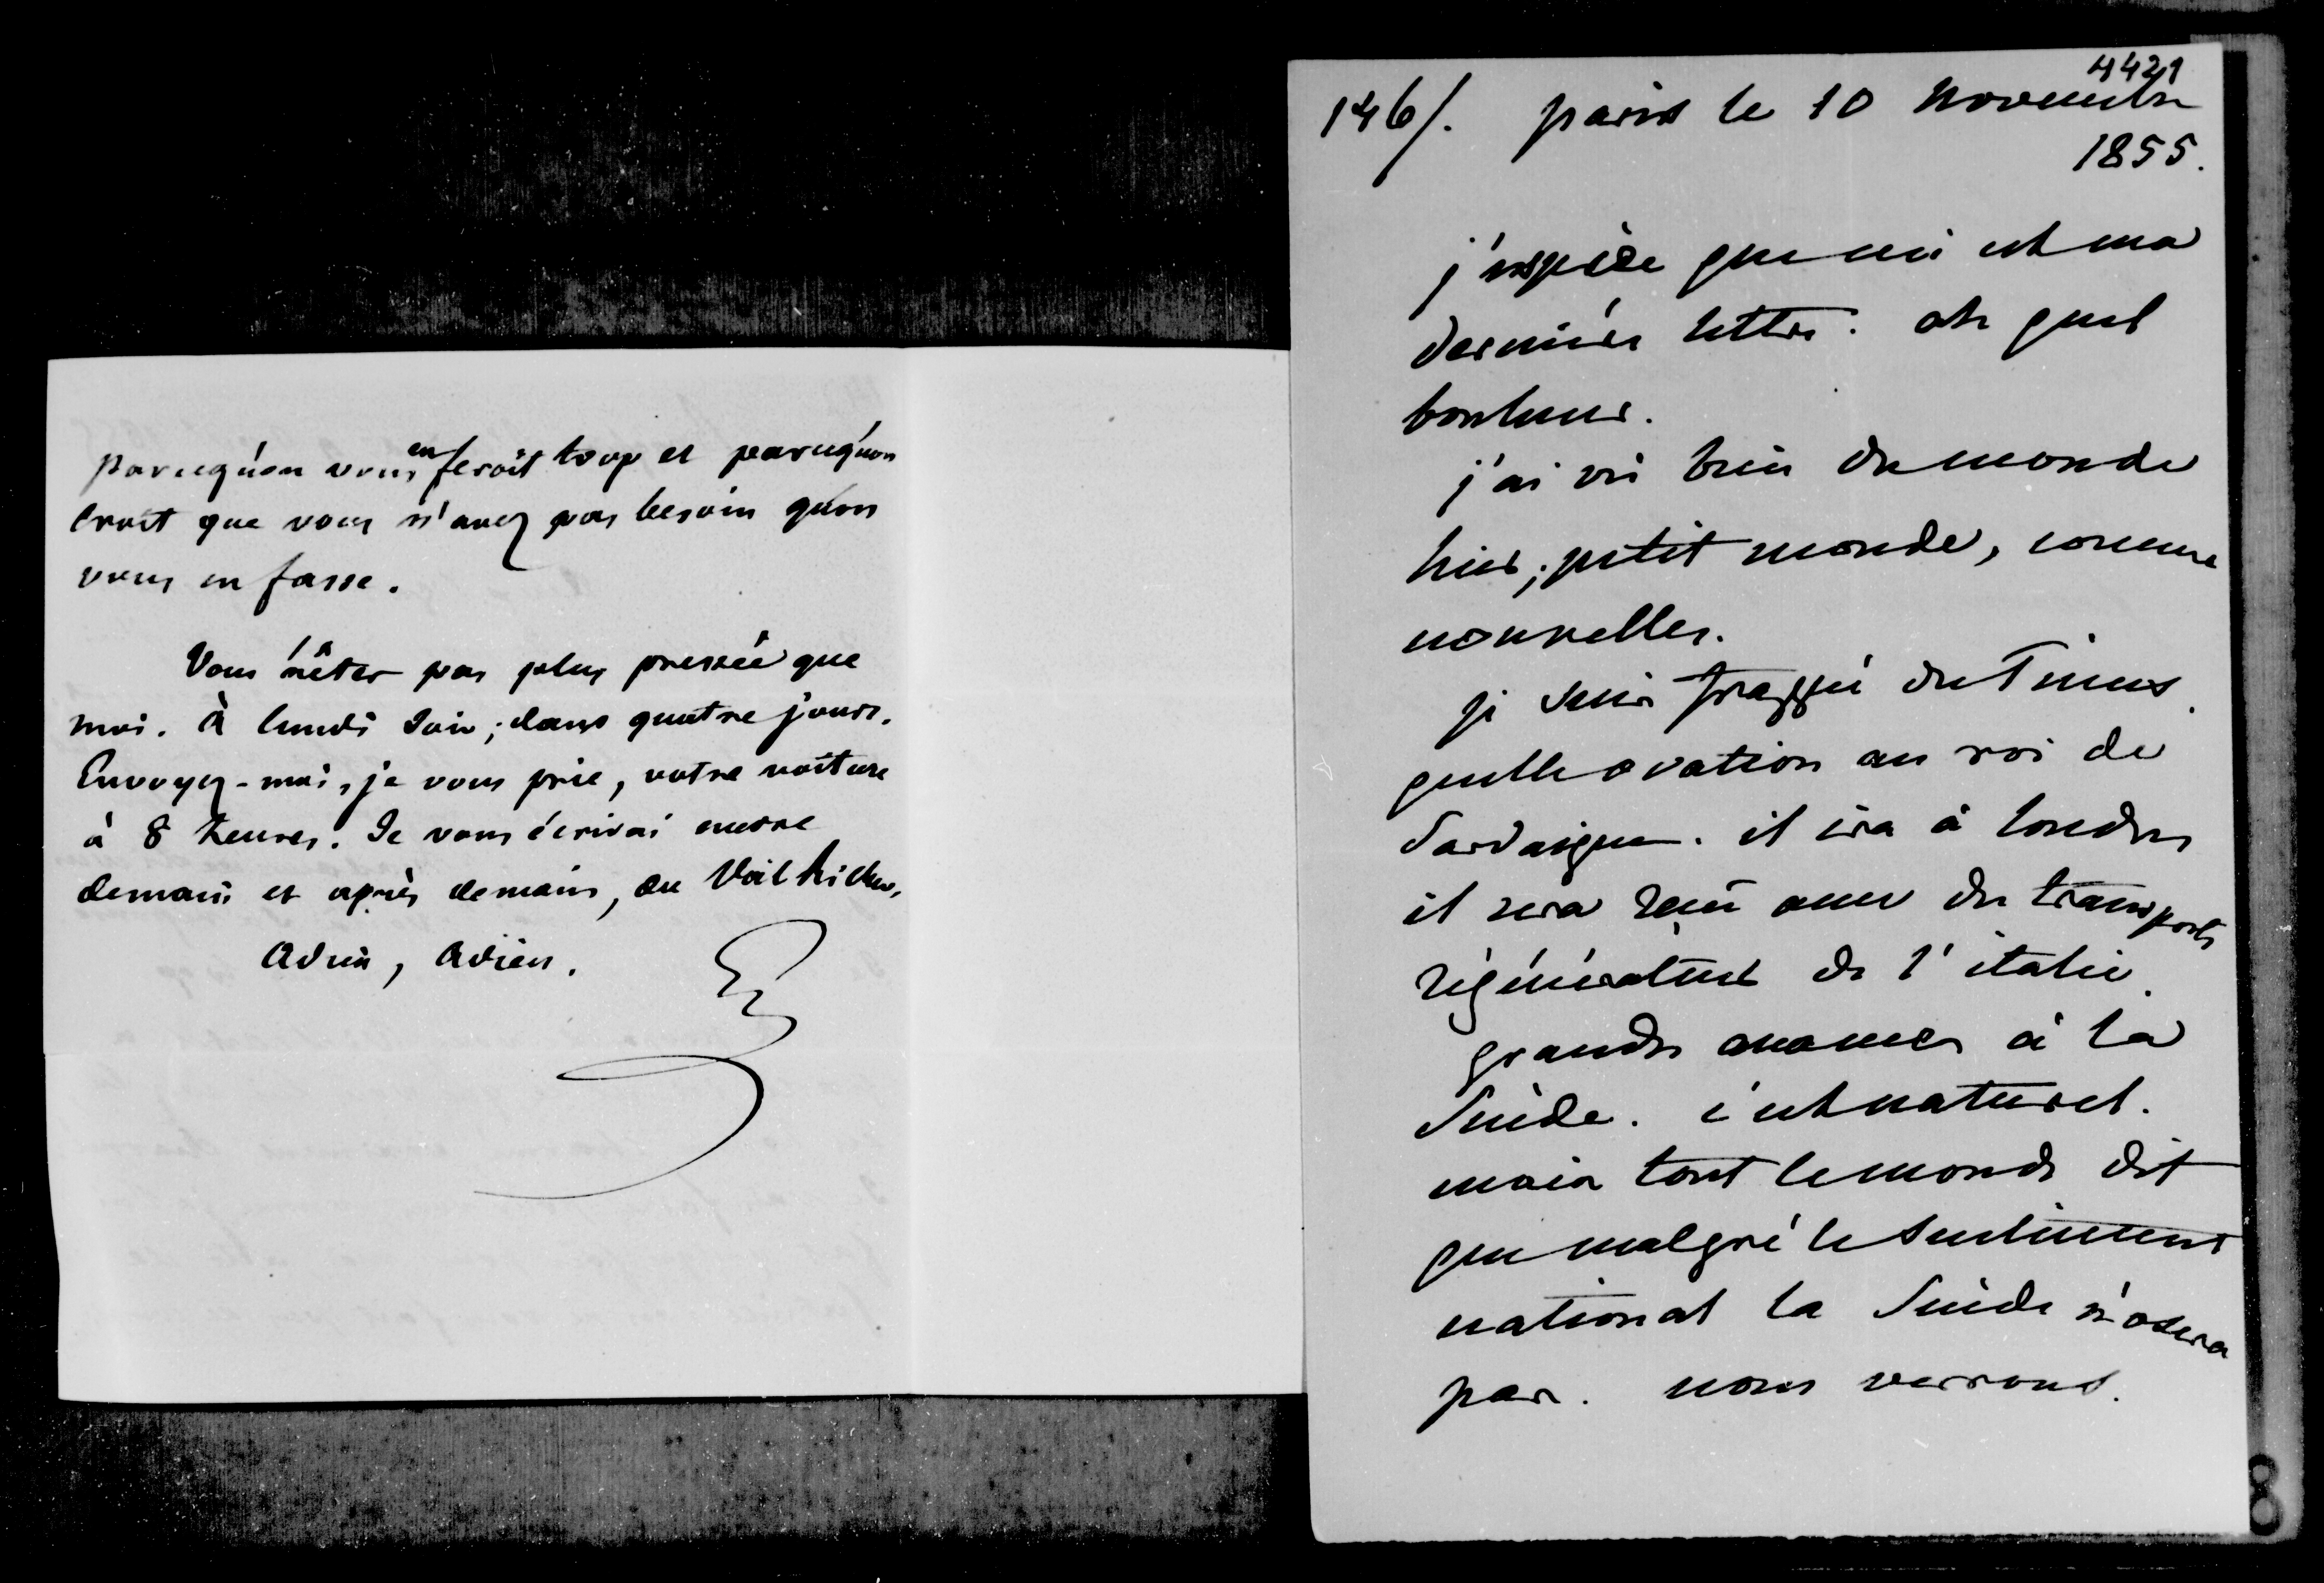 parcequ'on vous en feroit trop et parcequ'on
croit que vous n'avez pas besoin qu'on
vous en fasse.
Vous n'êtes pas plus pressée que
moi. à lundi soir, dans quatre jours.
Envoyez-moi, je vous prie, votre voiture
à 8 heures. Je vous écrirai encore
demain et après demain, du Val Richer.
Adieu, Adieu.
4421
146/. paris le 10 novembre
1855.
j'espère que ceci est ma
dernière lettre. oh quel
bonheur.
j'ai vu bien du monde
hier, petit monde, comme
nouvelles.
je suis frappée du Times.
quelle ovation au roi de
Sardaigne. il ira à londres
il sera reçu avec des transports
régénérateur de l'italie.
grandes avances à la
Suède. c'est naturel.
mais tout le monde dit
que malgré le sentiment
national la Suède n'osera
pas. nous verrons.
8